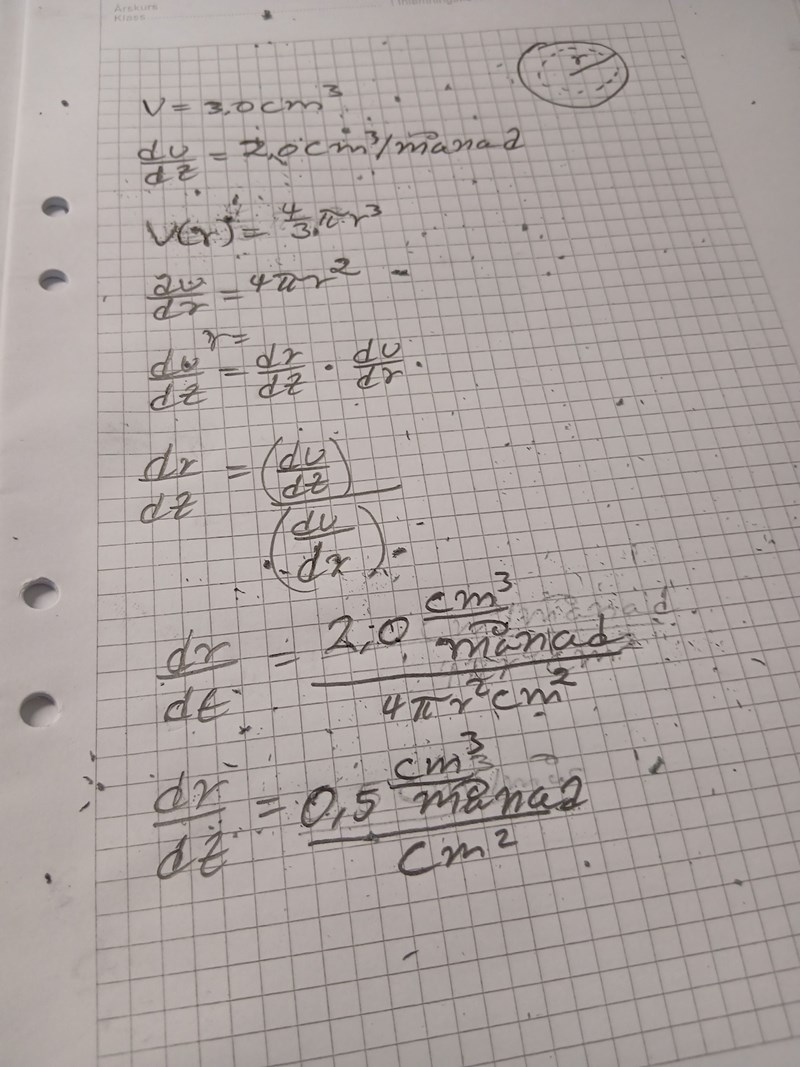 Årskurs
Klass
r
V = 3,0 cm³
dv/dt = 2,0 cm³/månad
V(r) = 4/3 · πr³
dv/dr = 4πr²
r =
dv/dt = dr/dt · dv/dr
dr/dt = (dv/dt)
(dv/dr)
dr/dt = 2,0 cm³/månad
4πr² cm²
dr/dt = 0,5 cm³/månad
cm²